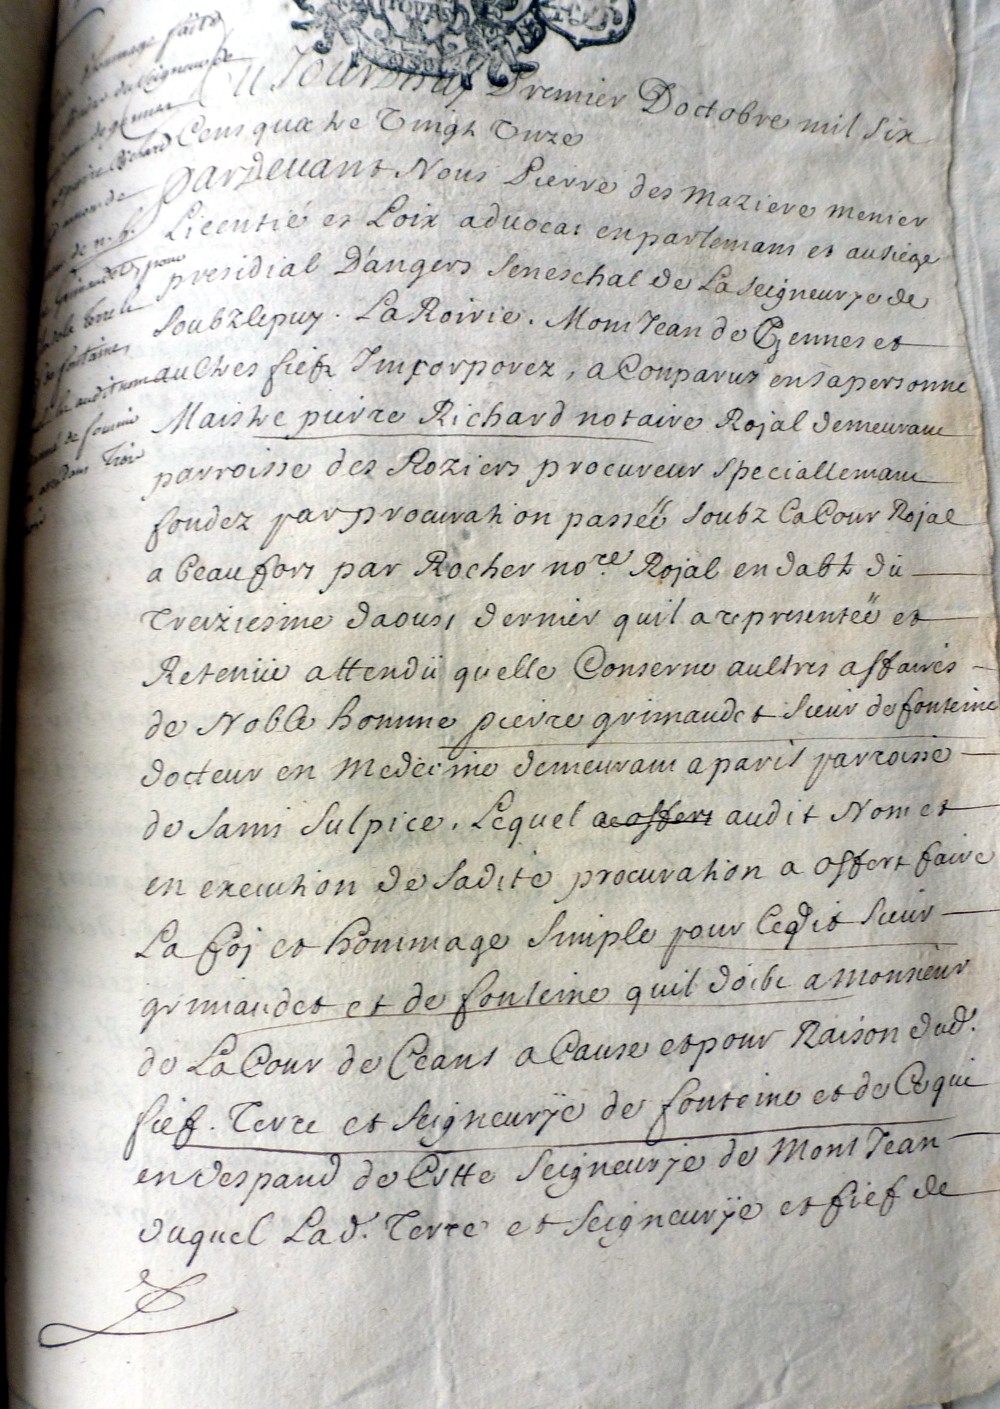 hommage faite
de gennes
Richard
de n. h.
grimaudet pour
terre
de fonteine
audit nom
de fournir
dans Trois
Aujourdhuy Premier Doctobre mil six
Cens quatre Vingt Unze
Pardevant Nous Pierre des maziere menier
Licentié es Loix advocat enparlemant et ausiege
presidial D'angers Seneschal de La seigneurye de
Soubzlepuy. La Roirie. Mont Jean de Gennes et
aultres fiefz Incorporez, a Comparus ensapersonne
Maistre pierre Richard notaire Rojal demeurant
parroisse des Roziers procureur speciallemant
fondez par procuration passéë soubz La Cour Rojal
a Beaufort par Rocher no.re Rojal en datte du
Treiziesme daoust dernier quil a representéë et
Retenüe attendü quelle Conserne aultres affaires
de Noble homme pierre grimaudet Sieur de fonteine
docteur en medecinne demeurant a paris parroisse
de saint Sulpice. Lequel a offert audit Nom et
en execution de sadite procuration a offert faire
La foj et hommage simple pour ledit Sieur
grimaudet et de fonteine quil doibt a monsieur
de La Cour de Ceans a Cause et pour Raison dud.
fief. Terre et seigneurÿe de fonteine et de Ce qui
en despand de Cette seigneurye de Mont Jean
duquel Lad. Terre et seigneurÿe et fief de